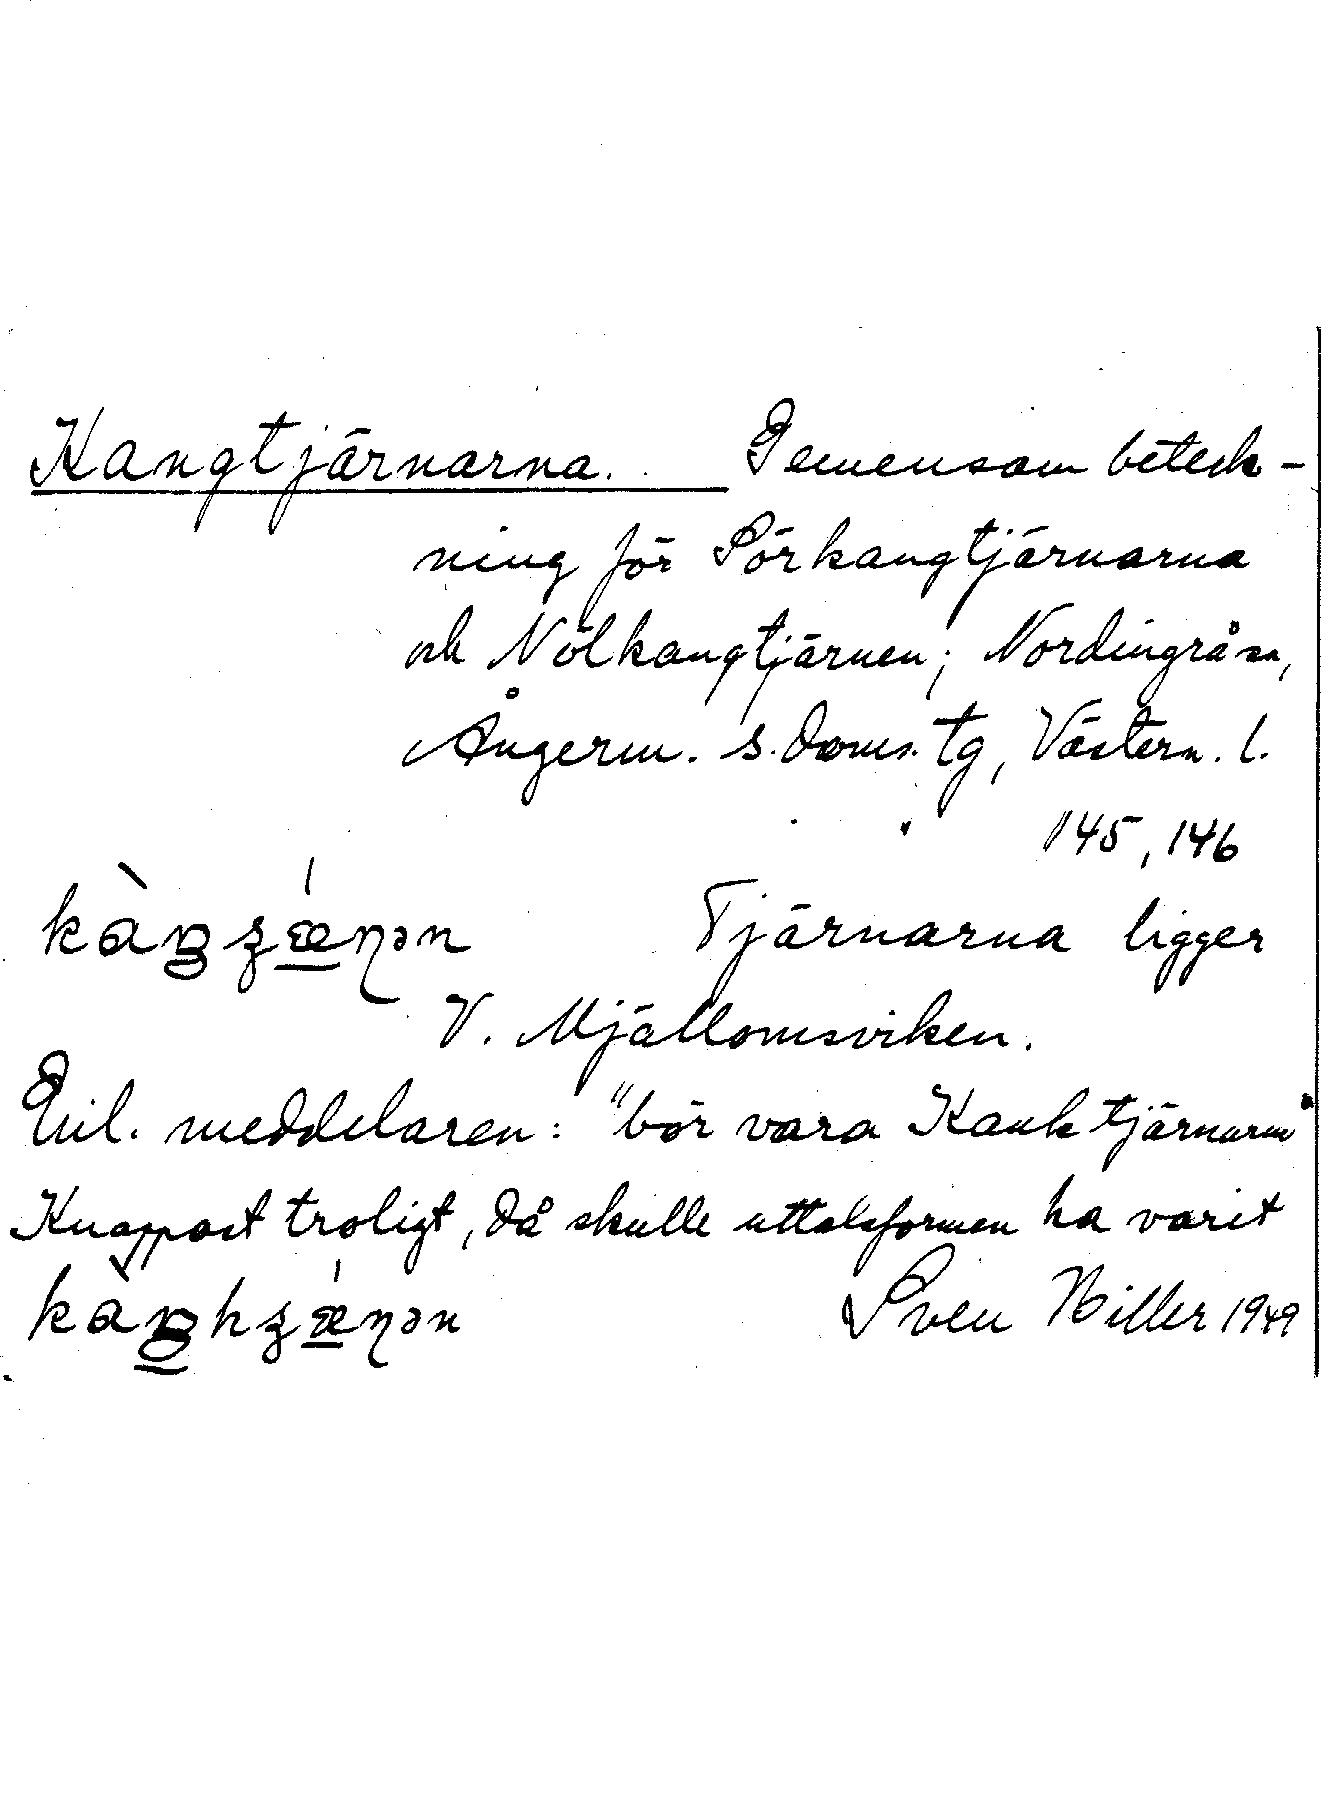 Kangtjärnarna. Gemensam beteck-
ning för Sörkangtjärnarna
och Nölkangtjärnen; Nordingrå sn,
Ångerm. s. doms. tg, Västern. l.
145, 146
Tjärnarna ligger
V. Mjällomsviken.
Enl. meddelaren: "bör vara Kanktjärnarna"
Knappast troligt, då skulle uttalsformen ha varit
Sven Hiller 1949